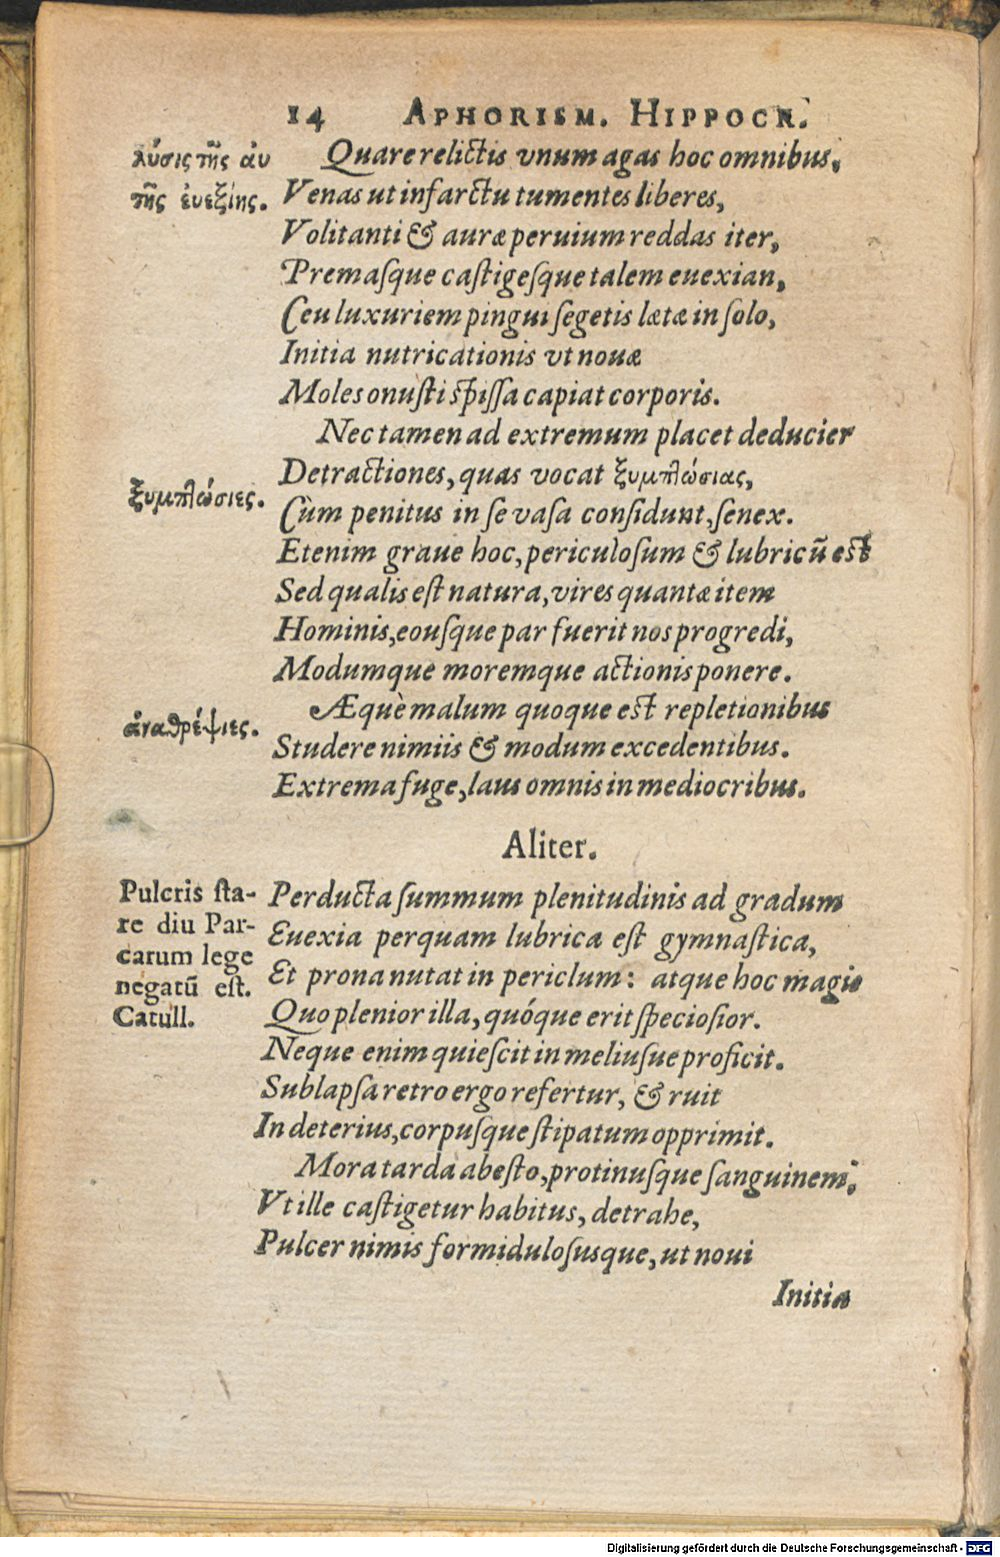 14 APHORISM. HIPPOCR.
λύσις τῆς αὐ
τῆς ἐυεξίης.
Quare relictis vnum agas hoc omnibus,
Venas ut infarctu tumentes liberes,
Volitanti & auræ peruium reddas iter,
Premasque castigesque talem euexian,
Ceu luxuriem pingui segetis lætæ in solo,
Initia nutricationis vt nouæ
Moles onusti spissa capiat corporis.
Nec tamen ad extremum placet deducier
Detractiones, quas vocat ξυμπλώσιας,
ξυμπλώσιες.
Cùm penitus in se vasa considunt, senex.
Etenim graue hoc, periculosum & lubricũ est
Sed qualis est natura, vires quantæ item
Hominis, eousque par fuerit nos progredi,
Modumque moremque actionis ponere.
Æquè malum quoque est repletionibus
ἀναθρέψιες.
Studere nimiis & modum excedentibus.
Extrema fuge, laus omnis in mediocribus.
Aliter.
Pulcris sta-
re diu Par-
carum lege
negatũ est.
Catull.
Perducta summum plenitudinis ad gradum
Euexia perquam lubrica est gymnastica,
Et prona nutat in periclum: atque hoc magis
Quo plenior illa, quóque erit speciosior.
Neque enim quiescit in meliusue proficit.
Sublapsa retro ergo refertur, & ruit
In deterius, corpusque stipatum opprimit.
Mora tarda abesto, protinusque sanguinem,
Vt ille castigetur habitus, detrahe,
Pulcer nimis formidulosusque, ut noui
Initia
Digitalisierung gefördert durch die Deutsche Forschungsgemeinschaft - DFG